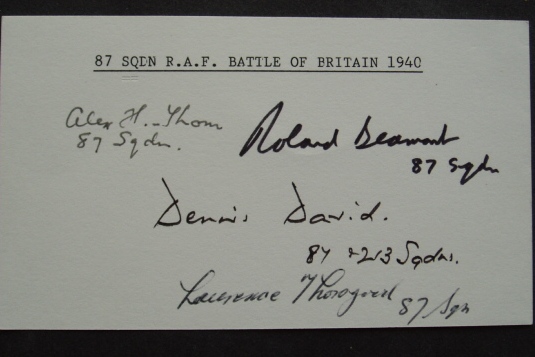 87 SQDN R.A.F. BATTLE OF BRITAIN 1940
Alex H. Thom
87 Sqdn.
Roland Beamont
87 Sqdn
Dennis David.
87 & 213 Sqdns.
Laurence Thorogood 87 Sqn